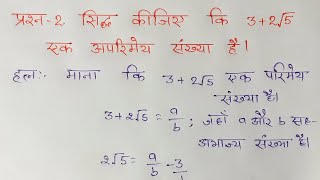 प्रश्न-2 सिद्ध कीजिए कि 3+2√5
एक अपरिमेय संख्या है।
हल:- माना कि 3+2√5 एक परिमेय
संख्या है।
3+2√5 = a/b ; जहाँ a और b सह-
अभाज्य संख्या है।
2√5 = a/b - 3/1